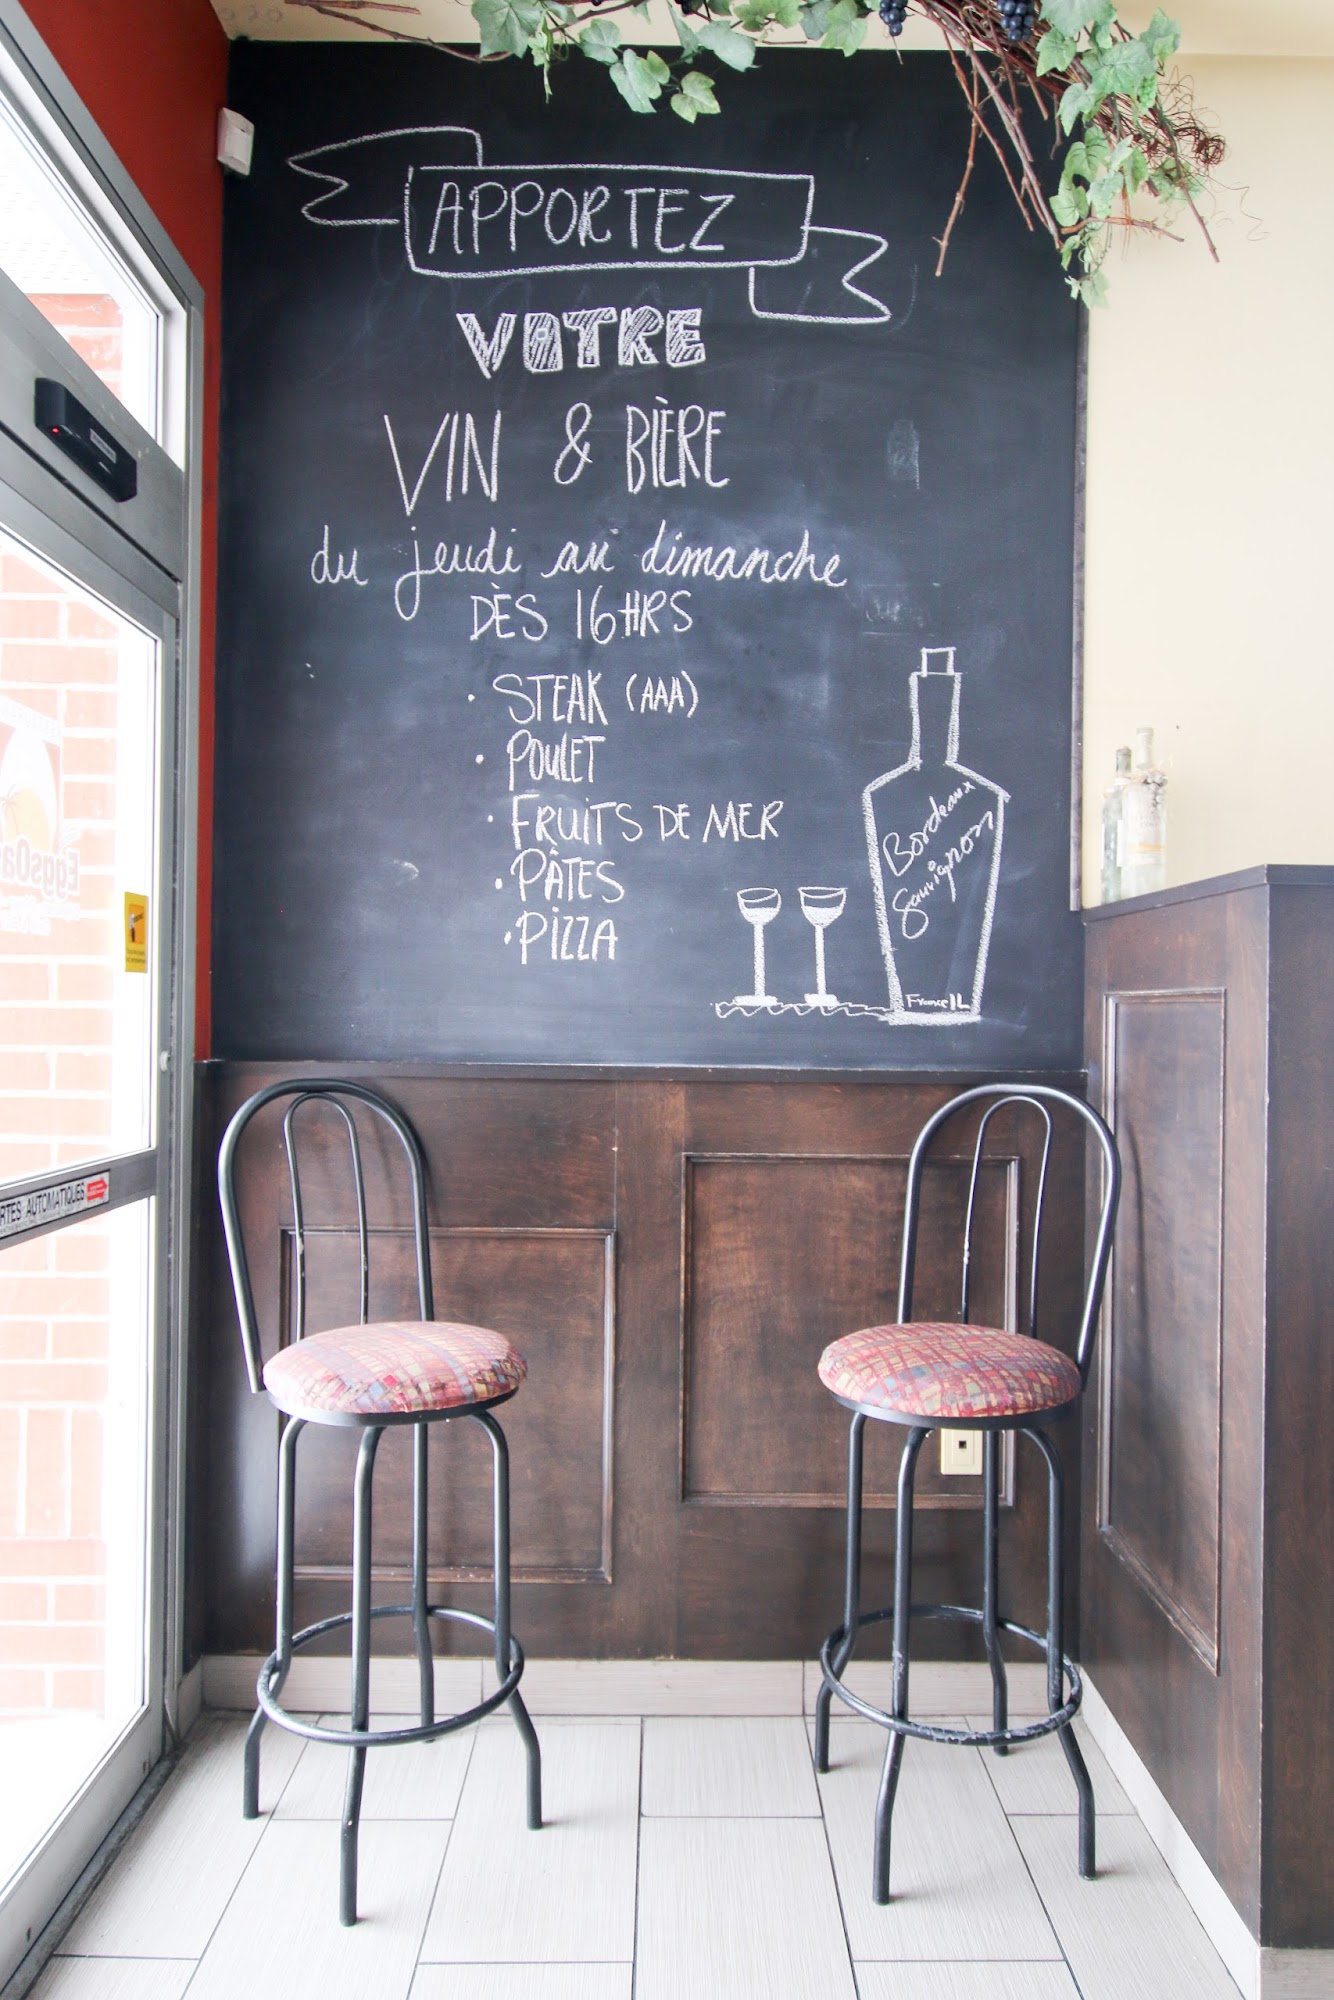 APPORTEZ
VOTRE
VIN & BIÈRE
du jeudi au dimanche
DÈS 16HRS
• STEAK (AAA)
• POULET
• FRUITS DE MER
• PÂTES
• PIZZA
Bordeaux
Sauvignon
France 1L
EggsOa
RTES AUTOMATIQUES